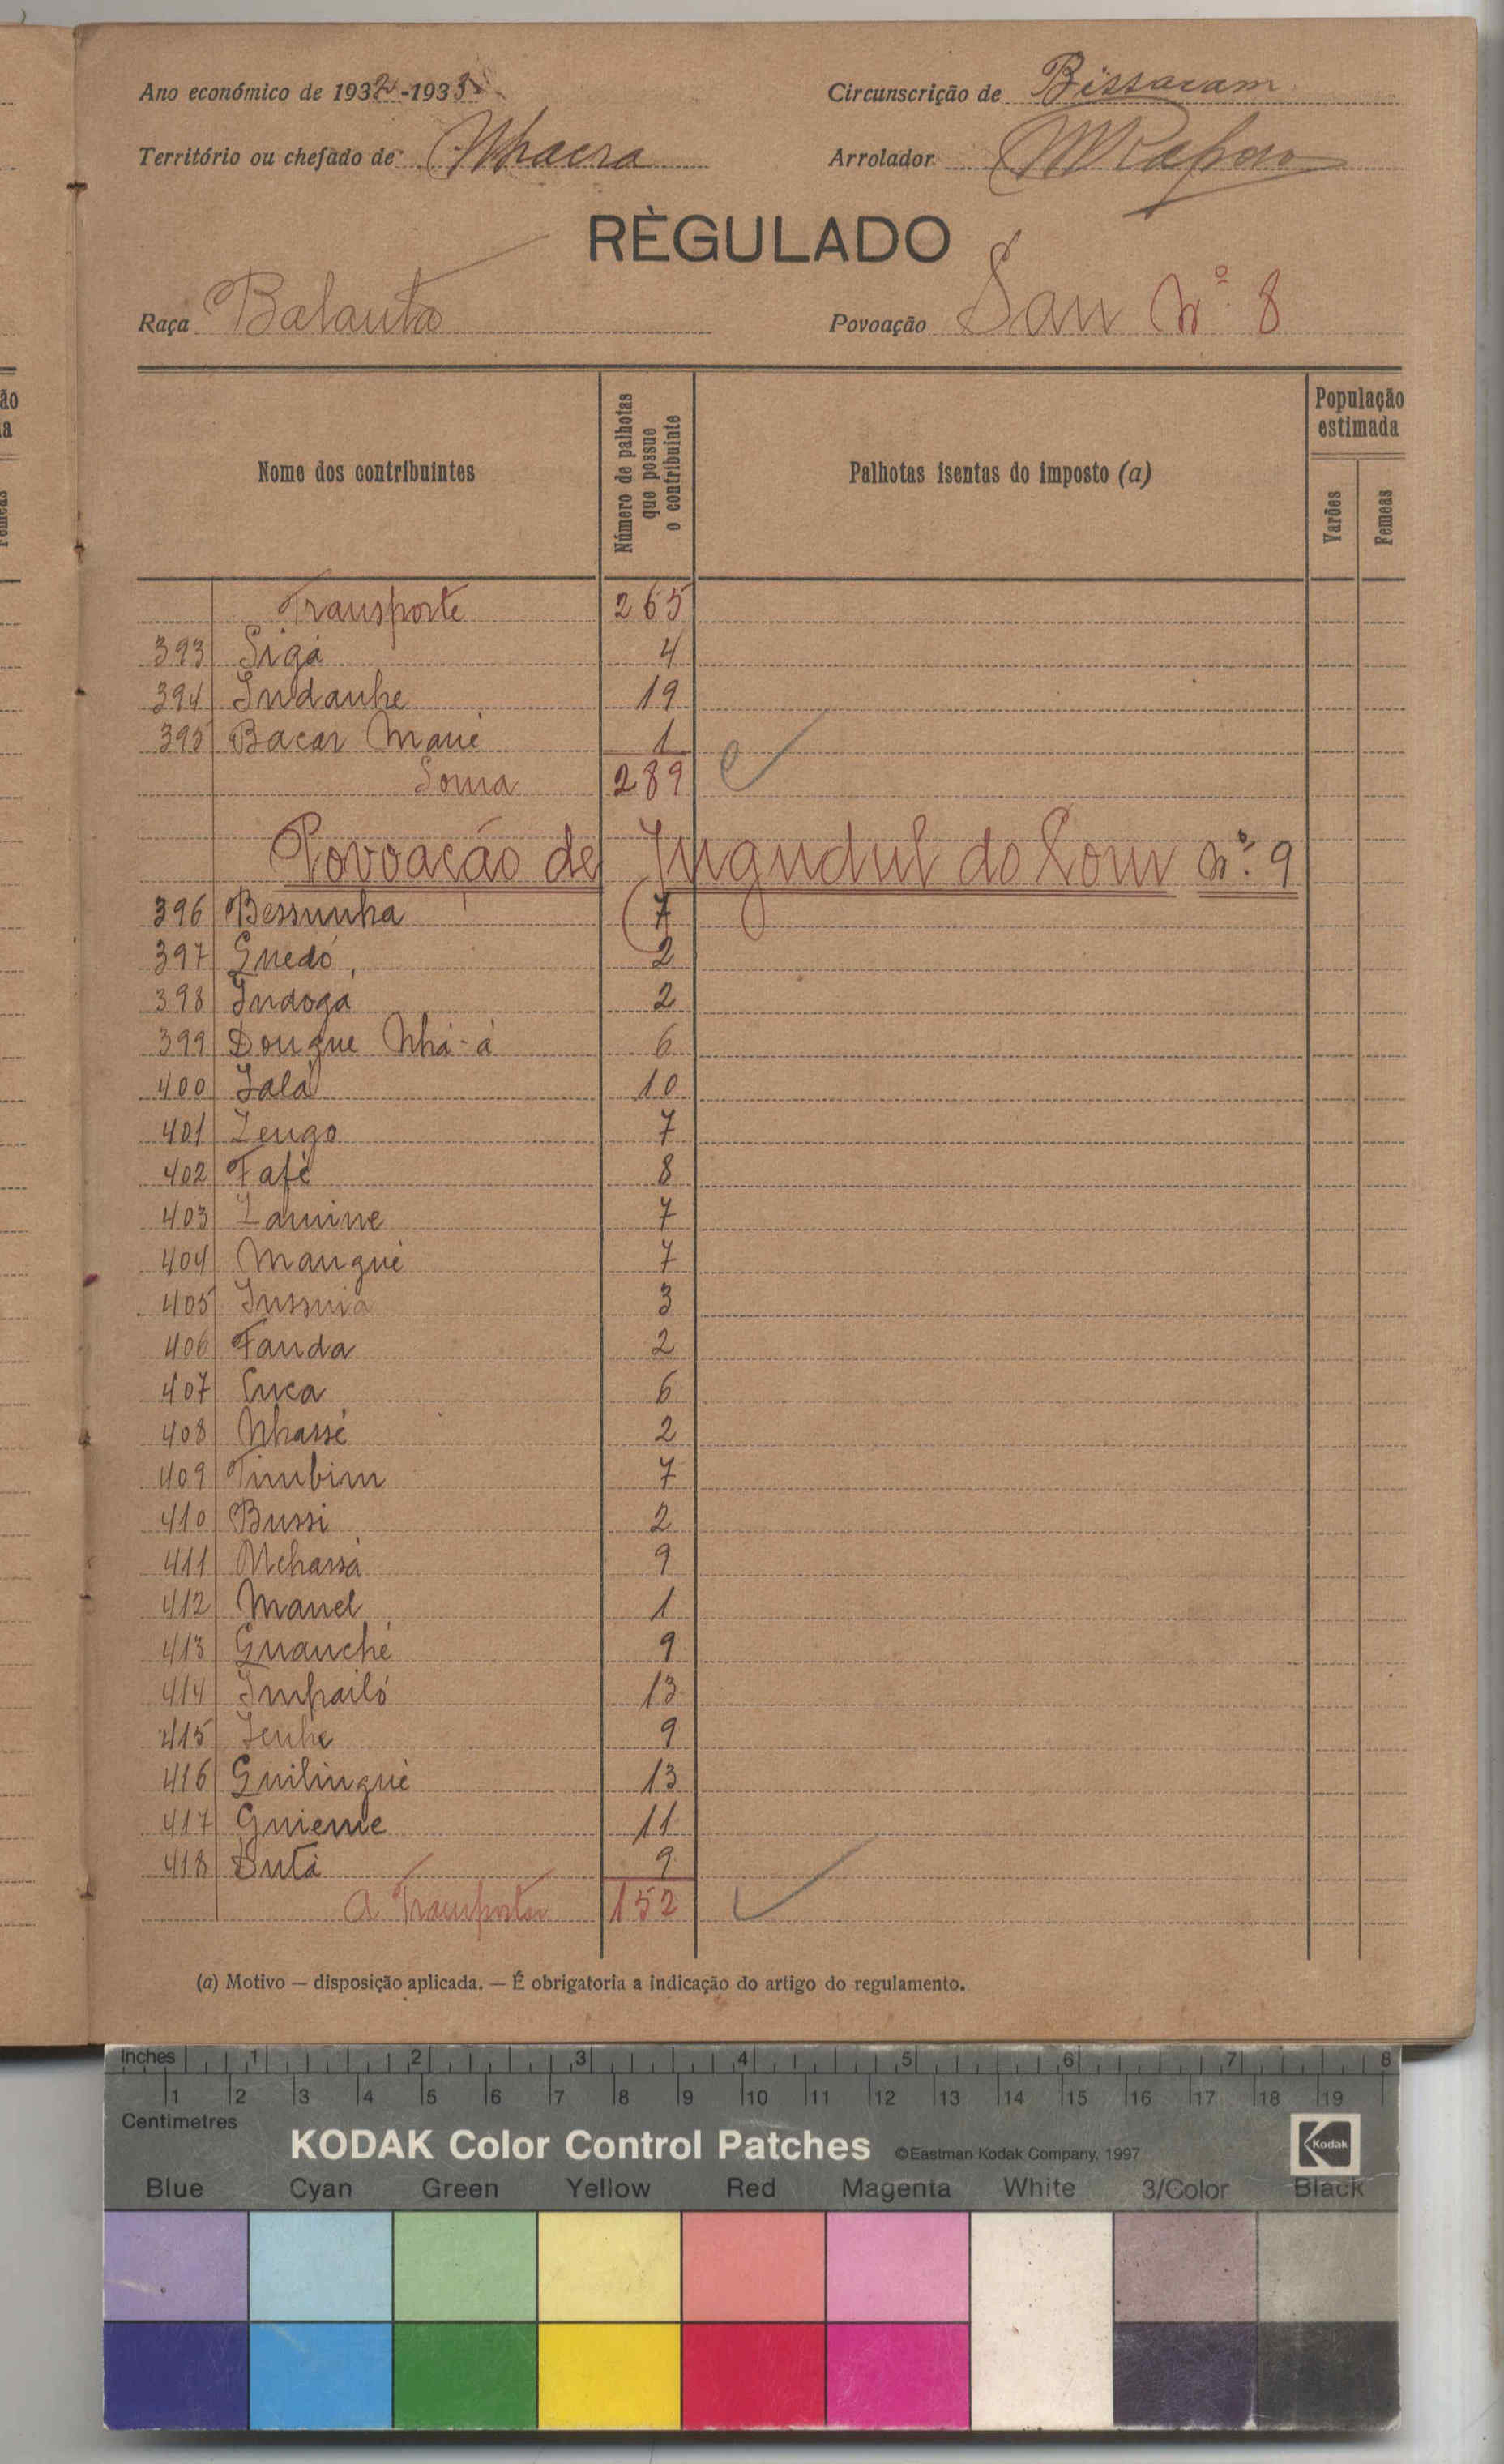 Ano económico de 1932-1933 Circunscrição de Bissaram
Território ou chefado de Nhacra Arrolador
RÈGULADO
Raça Balanta Povoação San Nº 8
Nome dos contribuintes Número de palhotas que possue o contribuinte Palhotas isentas do imposto (a) População estimada Varões Femeas
Transporte 265
393 Sigá 4
394 Indanhe 19
395 Bacar Mané 1
Soma 289
Povoação de Jugudul do Som Nº 9
396 Bessunha 7
397 Guedó 2
398 Indogá 2
399 Dongue Nhá-á 6
400 Jalá 10
401 Zengo 7
402 Fafé 8
403 Lamine 7
404 Mangué 7
405 3
406 Fanda 2
407 Cuca 6
408 Nhassé 2
409 Timbim 7
410 Bussi 2
411 Nchassá 9
412 Manel 1
413 Guanché 9
414 Impailó 13
415 Jenhe 9
416 Guilingué 13
417 Guieme 11
418 Dutá 9
A Transportar 152
(a) Motivo — disposição aplicada. — É obrigatoria a indicação do artigo do regulamento.
Inches 1 2 3 4 5 6 7 8
1 2 3 4 5 6 7 8 9 10 11 12 13 14 15 16 17 18 19
Centimetres
KODAK Color Control Patches ©Eastman Kodak Company, 1997 Kodak
Blue Cyan Green Yellow Red Magenta White 3/Color Black